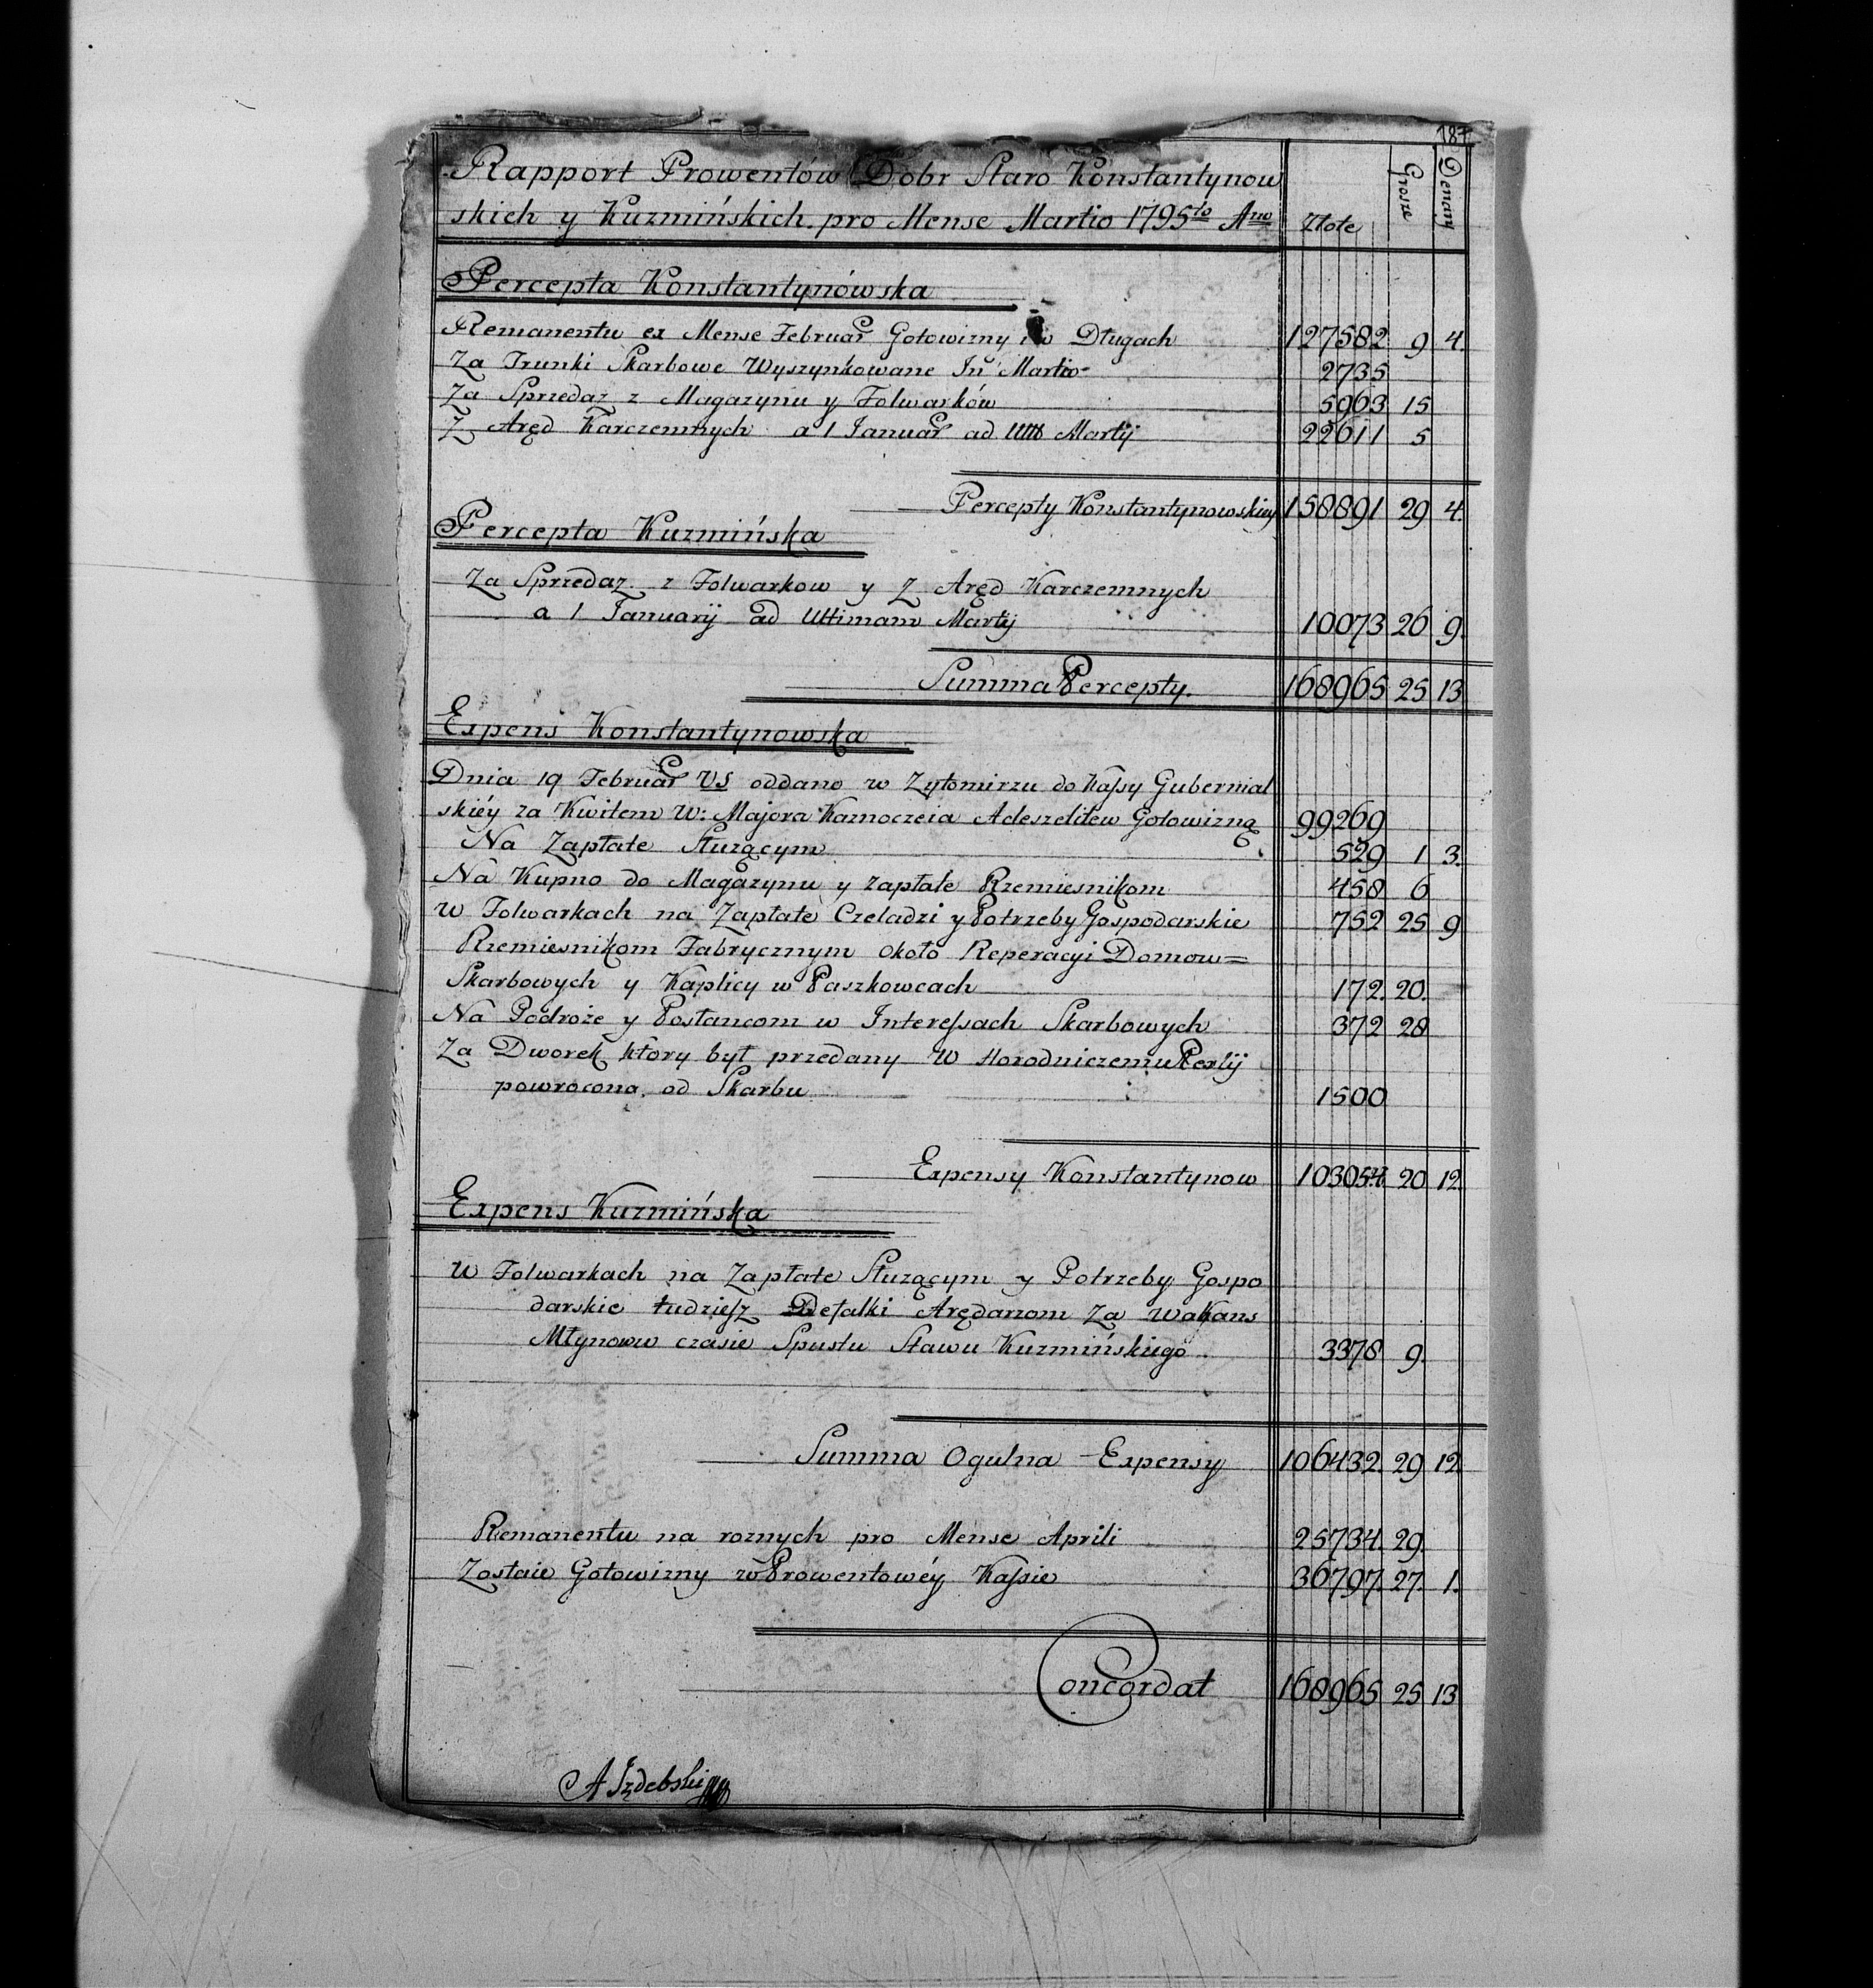 187
Rapport Prowentów Dobr Staro Konstantynow
skich y Kuzmińskich pro Mense Martio 1795to Ano Złote Grosze Denary
Percepta Konstantynówska
Remanentu ex Mense Februar Gotowizny i w Długach 127582 9 4.
Za Trunki Skarbowe Wyszynkowane In Martio 2735
Za Sprzedaz z Magazynu y Folwarków 5963 15
Z Aręd Karczemnych a 1 Januar ad Ult Martij 22611 5
Percepty Konstantynowskiey 158891 29 4.
Percepta Kuzmińska
Za Sprzedaz z Folwarkow y Z Aręd Karczemnych
a 1 Januarij ad Ultimam Martij 10073 26 9.
Summa Percepty. 168965 25 13
Expens Konstantynowska
Dnia 19 Februar VS oddano w Zytomirzu do Kassy Gubernial
skiéy za Kwitem W: Majora Gotowizną 99269
Na Zapłate Służącym 529 1 3.
Na Kupno do Magazynu y zapłate Rzemiesnikom 458 6
W Folwarkach na Zapłate Czeladzi y Potrzeby Gospodarskie 752 25 9
Rzemiesnikom Fabrycznym około Reperacyi Domow=
Skarbowych y Kaplicy w Paszkowcach 172. 20.
Na Podroże y Posłancom w Interessach Skarbowych 372 28
Za Dworek ktory był przedany W Horodniczemu
powrocono od Skarbu 1500
Expensy Konstantynow 103054 20 12.
Expens Kuzmińska
W Folwarkach na Zapłate Służącym y Potrzeby Gospo
darskie tudziesz Defalki Arędarzom Za Wakans
Młynow w czasie Spustu Stawu Kuzmińskiego 3378 9.
Summa Ogulna Expensy 106432. 29 12.
Remanentu na roznych pro Mense Aprili 25734. 29.
Zostaie Gotowizny w Prowentowéy Kassie 36797. 27. 1.
Concordat 168965 25 13
A Izdebski